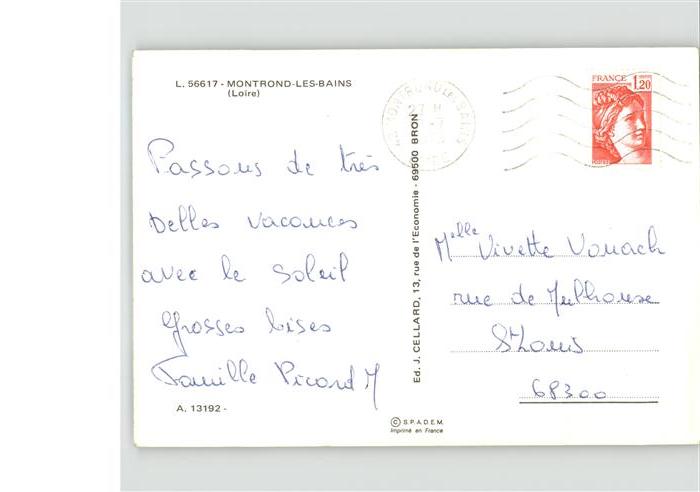 L. 56617 - MONTROND-LES-BAINS
(Loire)
Passons de très
belles vacances
avec le soleil
Grosses bises
Famille Picard M
A. 13192 -
Ed. J. CELLARD, 13, rue de l'Economie - 69500 BRON
© S.P.A.D.E.M.
Imprimé en France
FRANCE 1,20
MONTROND-LES-BAINS
Melle Vivette Vonach
rue de Mulhouse
St Louis
68300